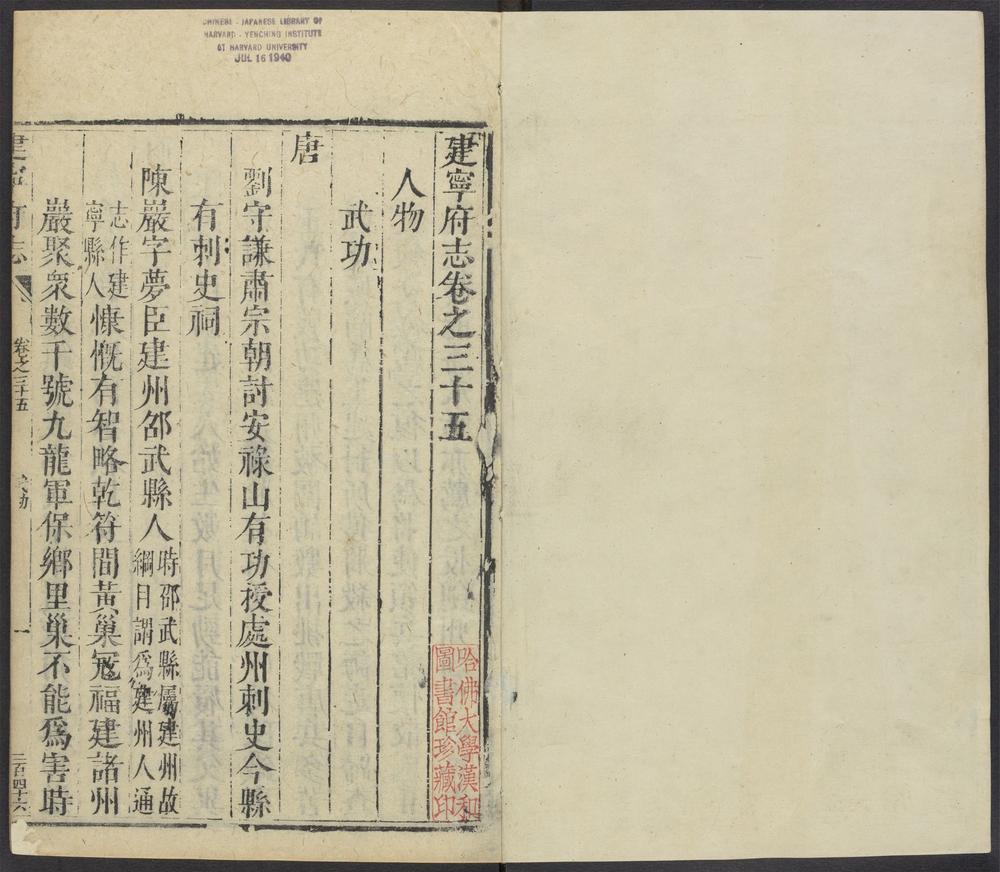 CHINESE - JAPANESE LIBRARY OF
HARVARD - YENCHING INSTITUTE
AT HARVARD UNIVERSITY
JUL 16 1940
建寧府志卷之三十五
人物
武功
唐
劉守謙肅宗朝討安祿山有功授處州刺史今縣
有刺史祠
陳巖字夢臣建州邵武縣人時邵武縣屬建州故
綱目謂爲建州人通
志作建
寧縣人慷慨有智略乾符間黃巢寇福建諸州
巖聚衆數千號九龍軍保鄉里巢不能爲害時
建寧府志
卷之三十五
一
三百四十六
哈佛大學漢和
圖書館珍藏印